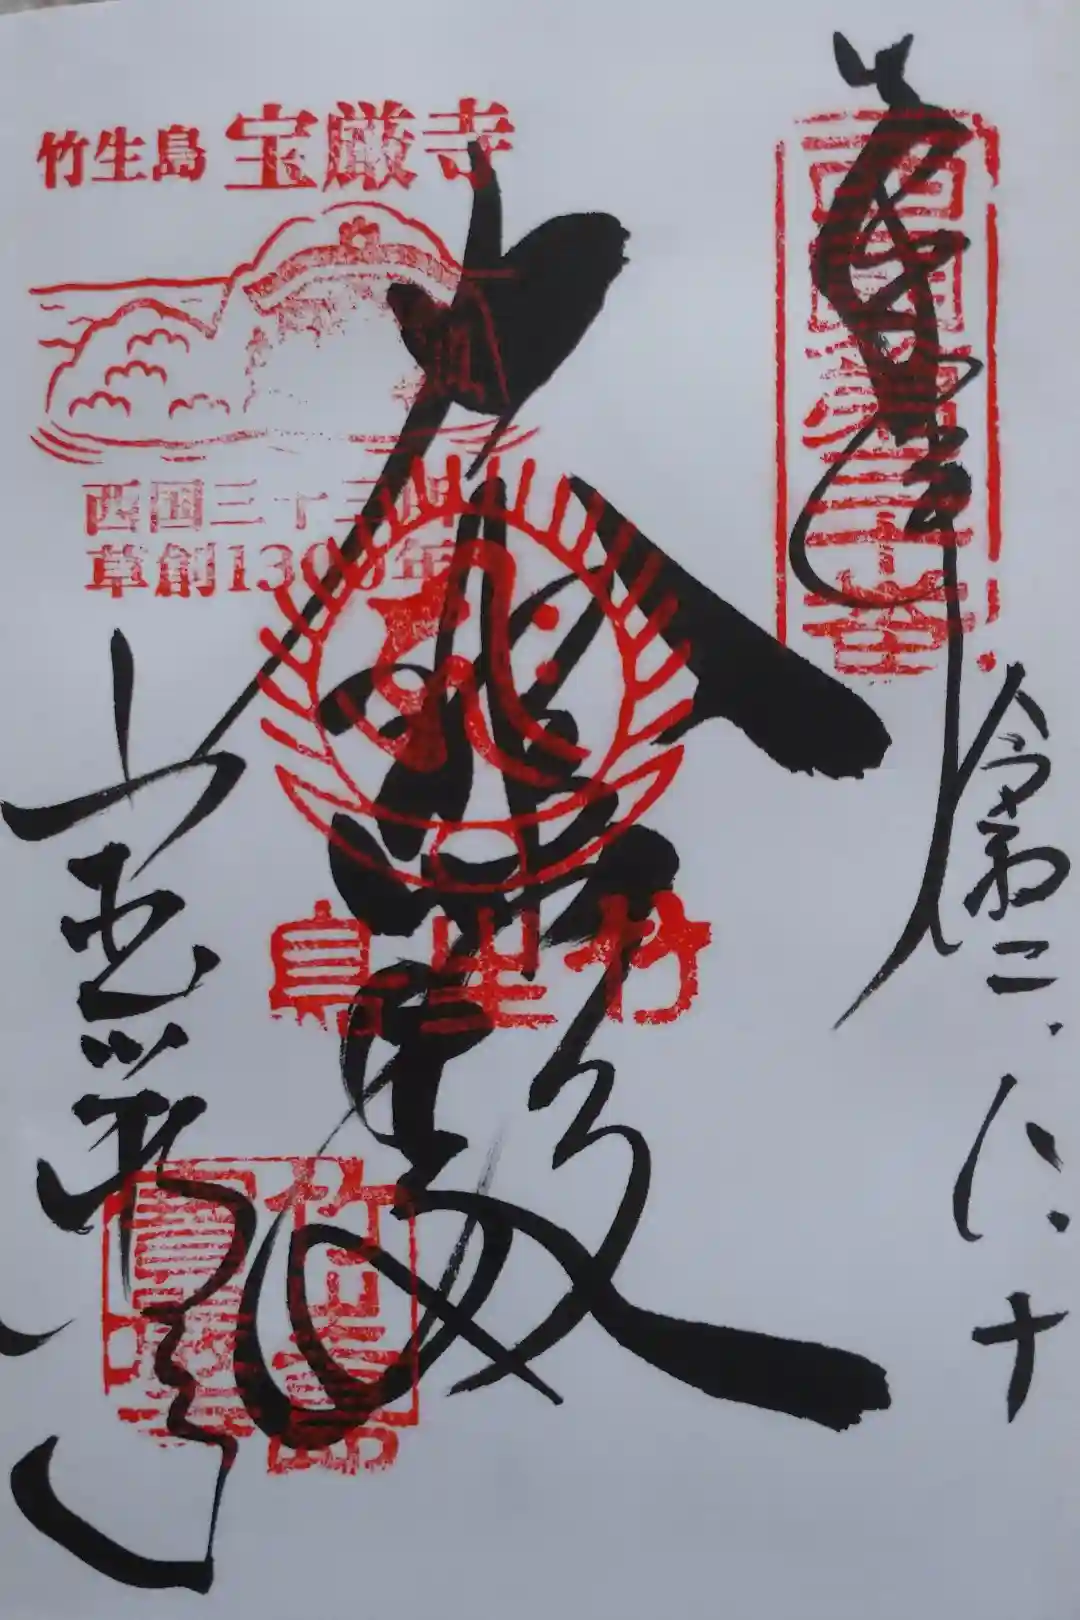 奉拝
西国第三十番
令和二.八.十
大悲殿
竹生島
竹生島 宝厳寺
西国三十三所
草創1300年
宝厳寺
竹生島